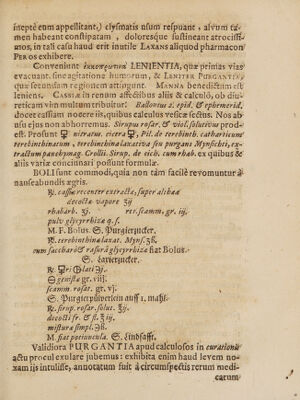 inepté eum appellitant,) clysmatis usum respuant, alvum ta-
men habeant constipatam, doloresque sustineant atrocissi-
mos, in tali casu haud erit inutile LAXANS aliquod pharmacon
PER os exhibere.
Conveniunt ἐκκοπρωτικὰ LENIENTIA, quæ primas vias
evacuant sine agitatione humorum, & LENITER PURGANTIA,
quæ secundam regionem attingunt. MANNA benedictum est
leniens. CASSIÆ in renum affectibus aliis & calculô, ob diu-
reticam vim multum tribuitur: Ballonius 2. epid. & ephemerid.
docet cassiam nocere iis, quibus calculus vesicæ sectus. Nos ab
usu ejus non abhorremus. Sirupus rosar. & viol. solutivus prod-
est. Prosunt nitratus. cicera, Pil. de terebinth. catharticum
terebinthinatum, terebinthina laxativa seu purgans Mynsichti, ex-
tractum panchymag. Crollii. Sirup. de cich. cum rhab. ex quibus &
aliis variæ concinnari possunt formulæ.
BOLI sunt commodi, quia non tàm facilè revomuntur à
nauseabundis ægris.
℞. cassiæ recenter extractæ, super alihææ
decoctæ vapore ʒij
rhabarb. ʒj. ret. scamm. gr. iij
pulv. glycyrrhizæ q. s.
M. F. Bolus. S. Purgierzucker.
℞. terebinthinæ laxat. Myns. ʒß.
cum saccharô & rasurâ glycyrrhizæ fiat Bolus.
S. Laxierzucker.
genistæ gr. vij.
scamm. rosat. gr. vj.
S. Purgierpülverlein auff 1. mahl.
℞. sirup. rosar. solut.
decocti fr. & fl.
misturæ simpl. ʒß.
M. fiat potiuncula. S. Lindsafft.
Validiora PURGANTIA apud calculosos in curationis
actu procul exulare jubemus: exhibita enim haud levem no-
xam iis intulisse, annotatum fuit à circumspectis rerum medi-
carum